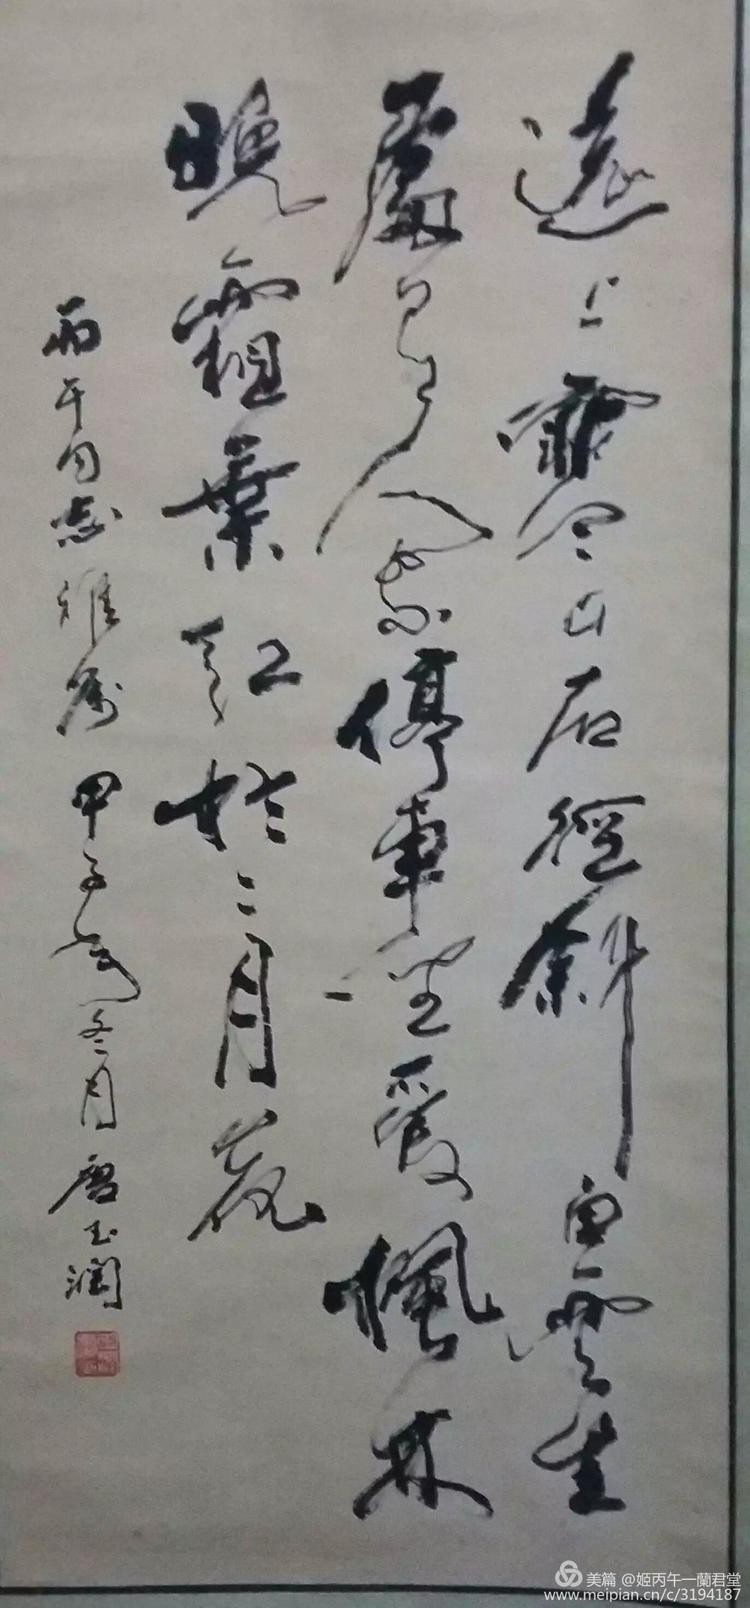 遠上寒山石徑斜白雲生
處有人家停車坐愛楓林
晚霜葉紅於二月花
丙午同志雅屬 甲子年冬月 唐玉潤
美篇 @姬丙午一蘭君堂
www.meipian.cn/c/3194187